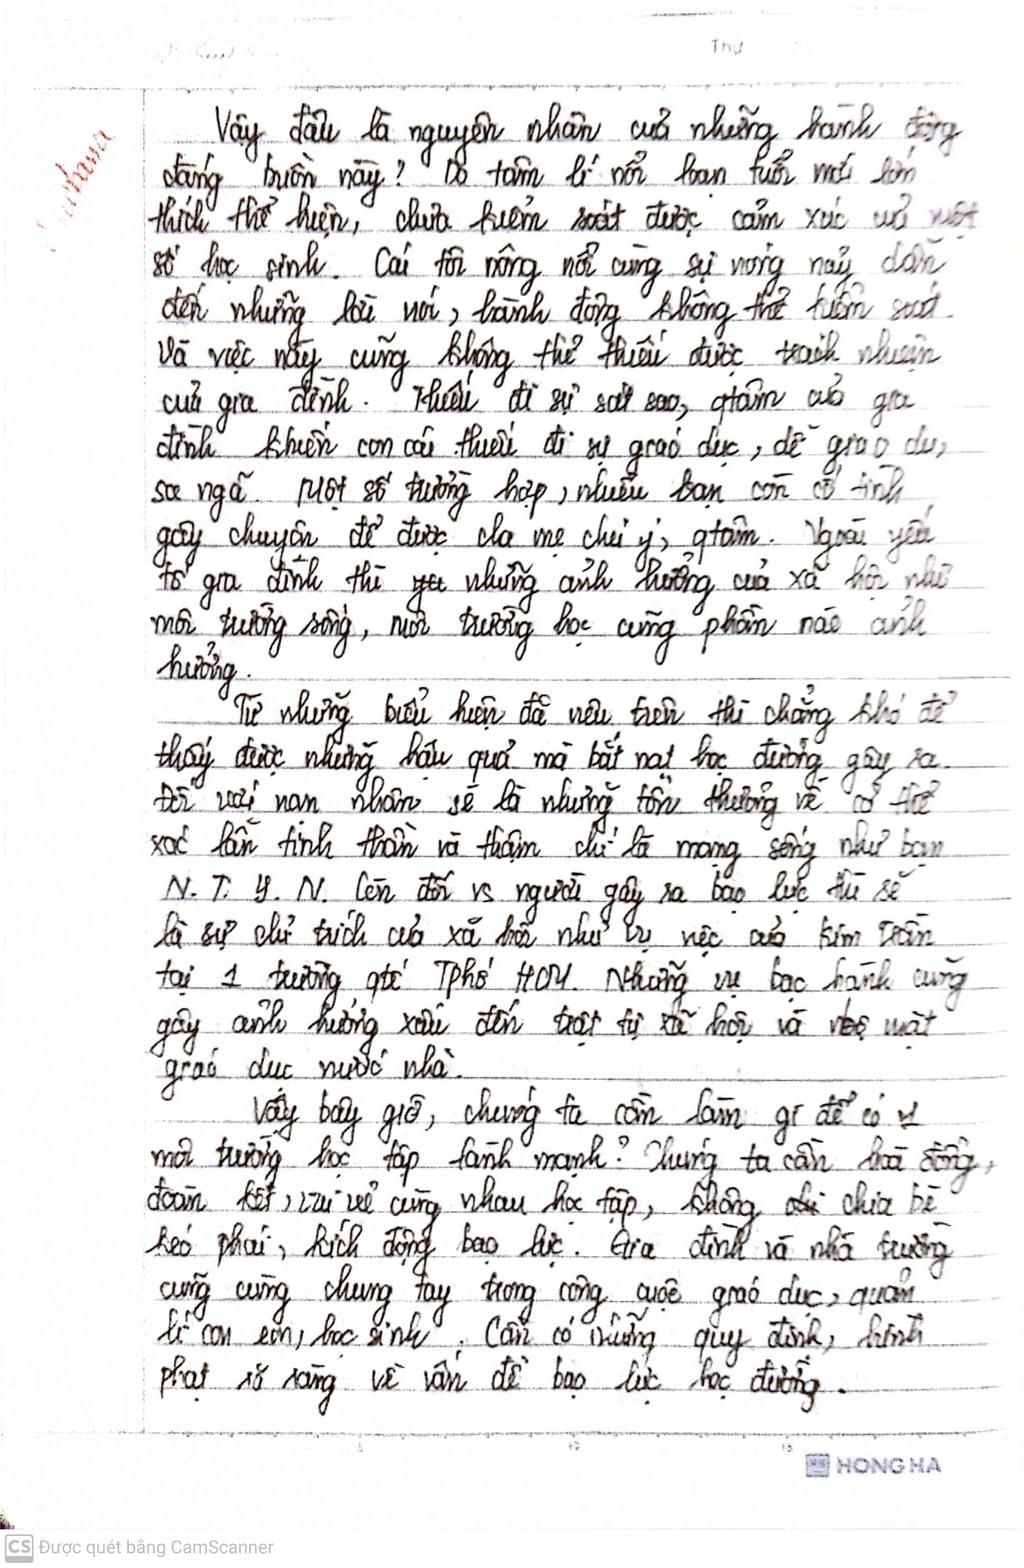 Thứ
Vậy đâu là nguyên nhân của những hành động
đáng buồn này? Do tâm lí nổi loạn tuổi mới lớn
thích thể hiện, chưa kiểm soát được cảm xúc của một
số học sinh. Cái tôi nông nổi cùng sự nóng nảy dẫn
đến những lời nói, hành động không thể kiểm soát.
Và việc này cũng không thể thiếu được trách nhiệm
của gia đình. Thiếu đi sự sát sao, qtâm của gia
đình khiến con cái thiếu đi sự giáo dục, dễ giao du,
sa ngã. Một số trường hợp, nhiều bạn còn cố tình
gây chuyện để được cha mẹ chú ý, qtâm. Ngoài yếu
tố gia đình thì những ảnh hưởng của xã hội như
môi trường sống, môi trường học cũng phần nào ảnh
hưởng.
Từ những biểu hiện đã nêu trên thì chẳng khó để
thấy được những hậu quả mà bắt nạt học đường gây ra.
Đối với nạn nhân sẽ là những tổn thương về cơ thể
xác lẫn tinh thần và thậm chí là mạng sống như bạn
N. T. Y. N. Còn đối vs người gây ra bạo lực thì sẽ
là sự chỉ trích của xã hội như vụ việc của Kim Trần
tại 1 trường qtế Tphố HCM. Những vụ bạo hành cũng
gây ảnh hưởng xấu đến trật tự xã hội và mặt
giáo dục nước nhà.
Vậy bây giờ, chúng ta cần làm gì để có 1
môi trường học tập lành mạnh? Chúng ta cần hoà đồng,
đoàn kết, vui vẻ cùng nhau học tập, không chia bè
kéo phái, kích động bạo lực. Gia đình và nhà trường
cũng cùng chung tay trong công cuộc giáo dục, quản
lí con em, học sinh. Cần có những quy định, hình
phạt rõ ràng về vấn đề bạo lực học đường.
5 10 15
HONG HA
CS Được quét bằng CamScanner